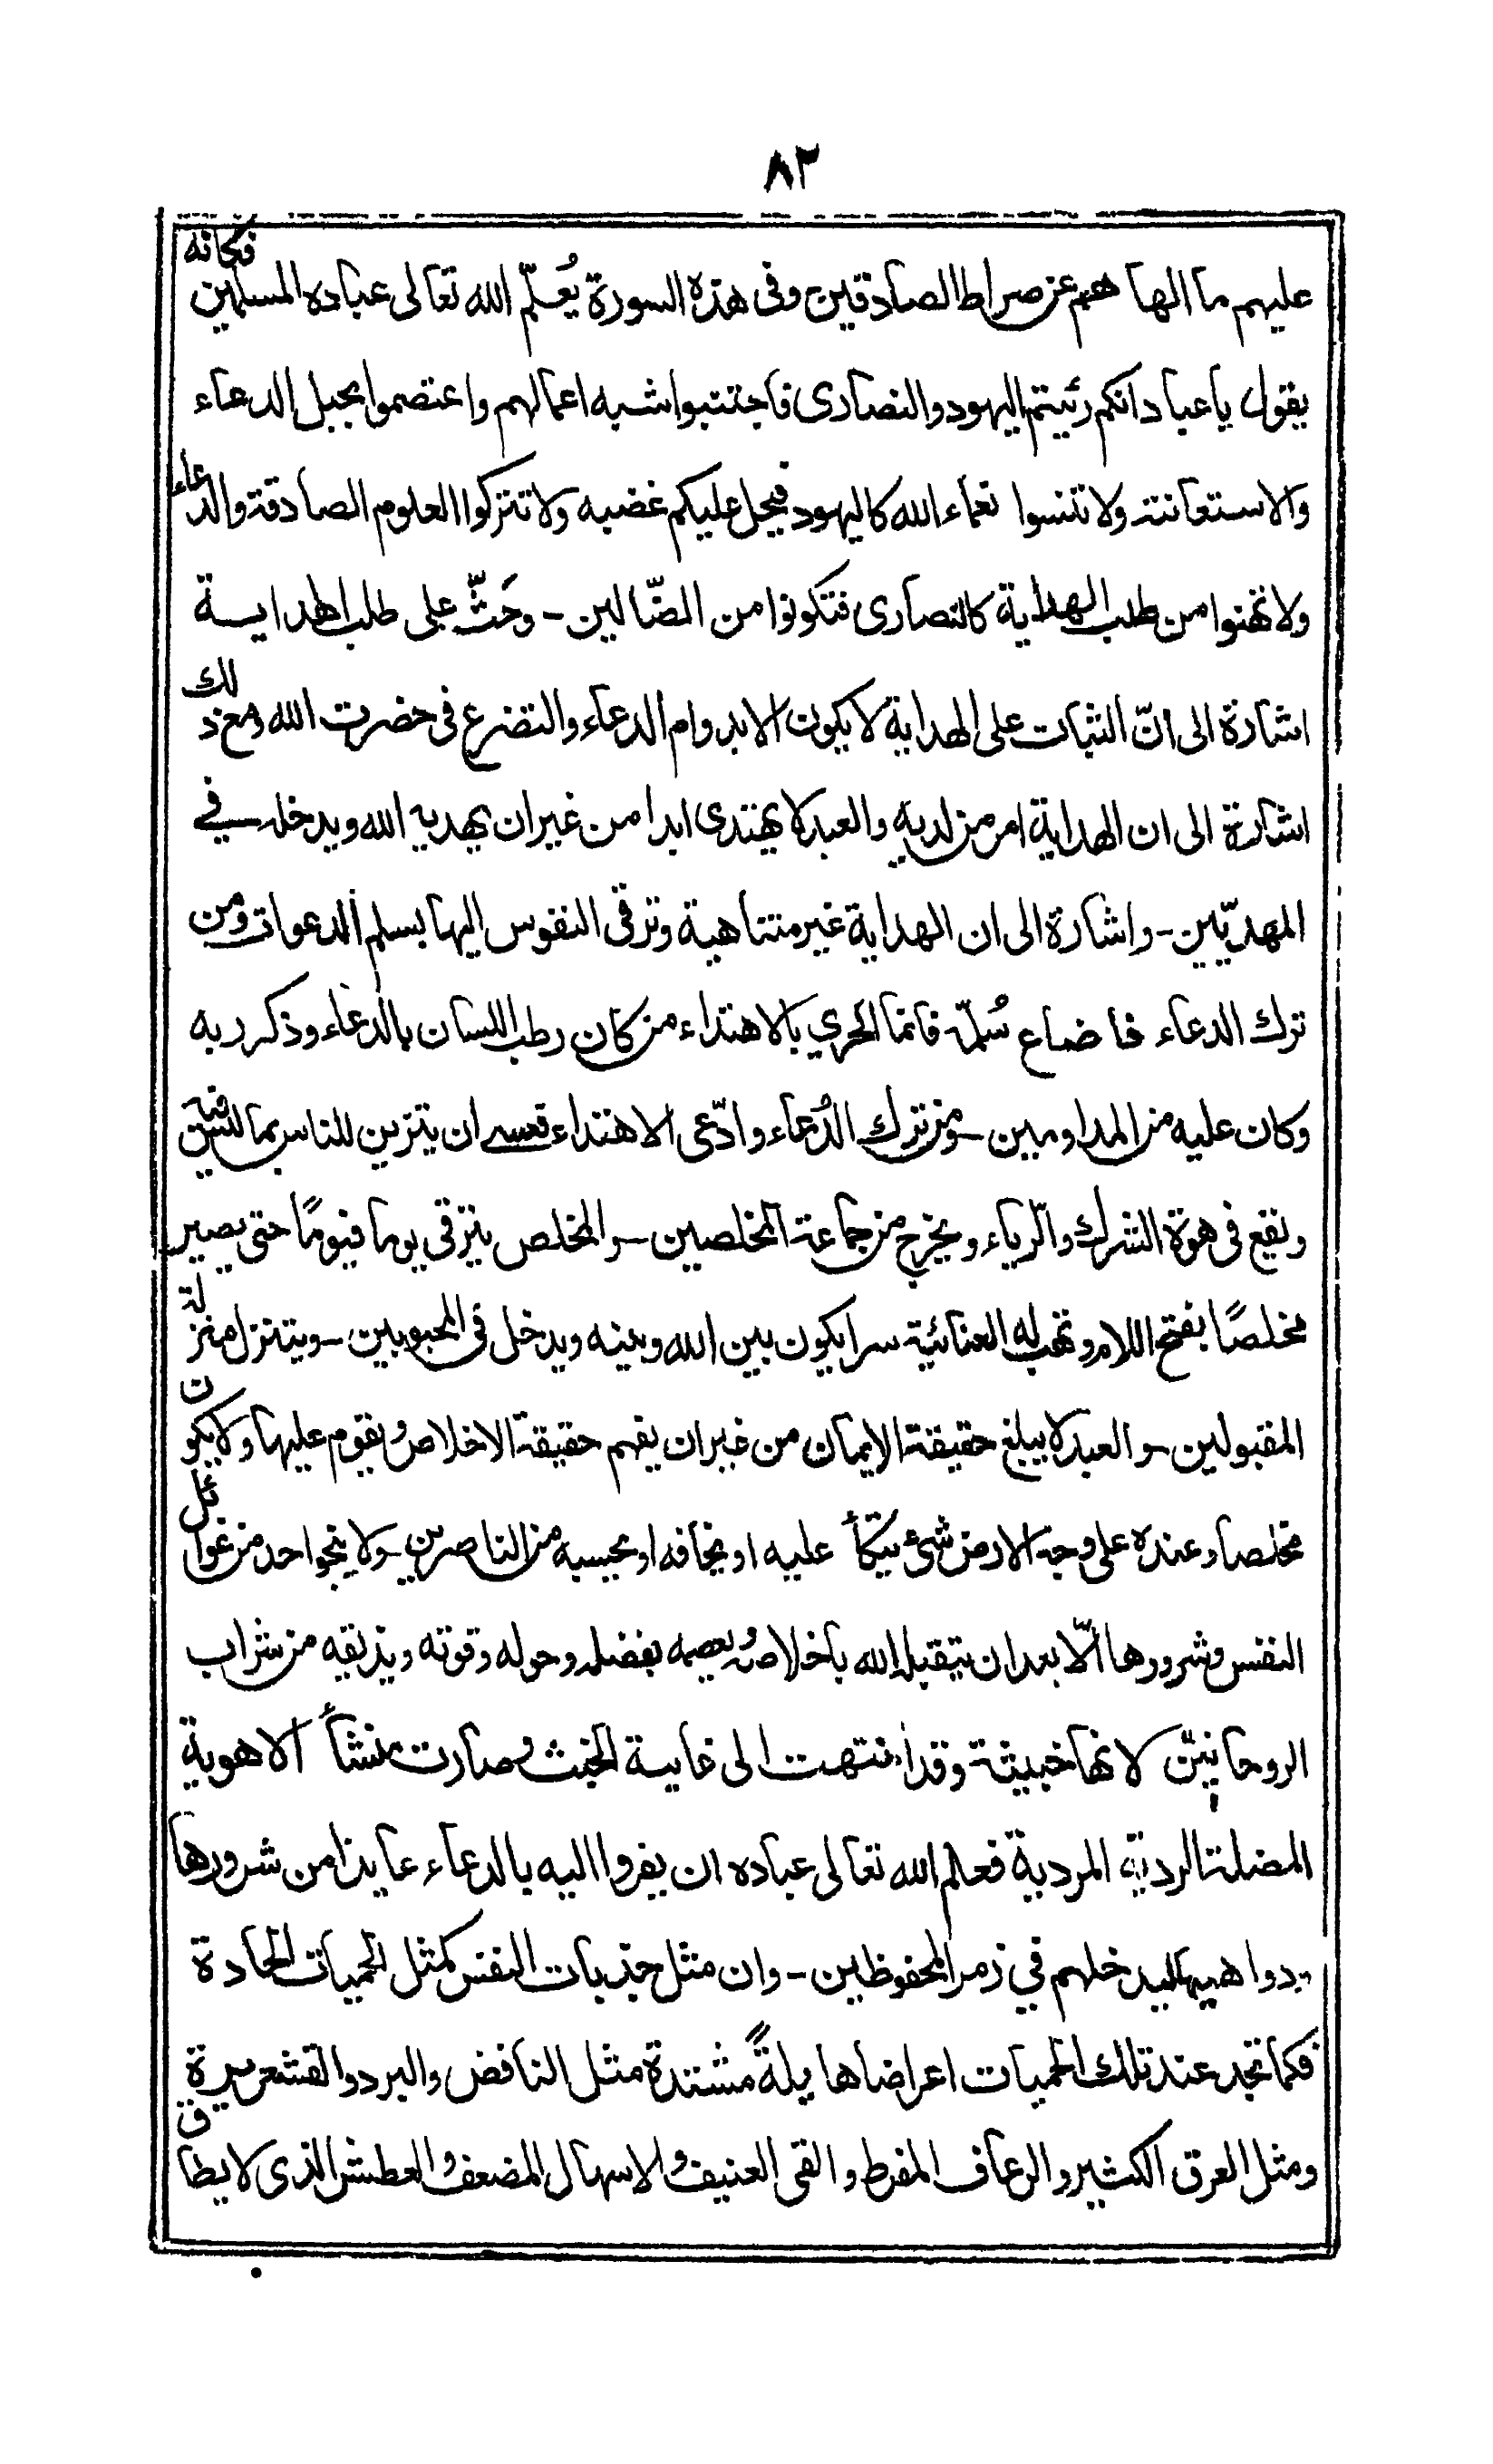 ٨٢
عليهم ما الهاهم عن صراط الصادقين وفى هذه السورة يُعلّم الله تعالى عباده المسلمين فكانه
يقول يا عباد انكم رئيتم اليهود والنصارى فاجتنبوا شبه اعمالهم واعتصموا بحبل الدعاء
والاستعانة ولا تنسوا نعماء الله كاليهود فيحل عليكم غضبه ولا تتركوا العلوم الصادقة والدعاء
ولا تهنوا من طلب الهداية كالنصارى فتكونوا من الضّالين - وحَثّ على طلب الهداية
اشارة الى انّ الثبات على الهداية لا يكون الا بدوام الدعاء والتضرع فى حضرت الله ومع ذلك
اشارة الى ان الهداية امر من لديه والعبد لا يهتدى ابدا من غير ان يهديه الله ويدخله في
المهديّين - واشارة الى ان الهداية غير متناهية وترقى النفوس اليها بسلم الدعوات ومن
ترك الدعاء فاضاع سُلّمه فانما الحري بالاهتداء من كان رطب اللسان بالدعاء وذكر ربه
وكان عليه من المداومين - ومن ترك الدُعاء وادّعى الاهتداء فعسى ان يتزين للناس بما ليس فيه
ويقع فى هوة الشرك والرّياء ويخرج من جماعة المخلصين - والمخلص يترقى يوما فيومًا حتى يصير
مخلصًا بفتح اللام وتهب له العنائية سرا يكون بين الله وبينه ويدخل فى المحبوبين - ويتنزل منزلة
المقبولين - والعبد لا يبلغ حقيقة الايمان من غير ان يفهم حقيقة الاخلاص ويقوم عليها ولا يكون
مخلصا وعنده على وجه الارض شئ يتكأ عليه او يخافه او يحسبه من الناصرين - ولا ينجوا احد من غوائل
النفس وشرورها الّا بعد ان يتقبله الله باخلاصه ويعصمه بفضله وحوله وقوته ويذيقه من شراب
الروحانيين لانها خبيثة وقد انتهت الى غاية الخبث وصارت منشأ الاهوية
المضلة الردية المردية فعلم الله تعالى عباده ان يفروا اليه بالدعاء عايذا من شرورها
ودواهيها ليدخلهم في زمر المحفوظين - وان مثل جذبات النفس كمثل الحميات الحادة
فكما تجد عند تلك الحميات اعراضا هايلةً مشتدة مثل النافض والبرد والقشعريرة
ومثل العرق الكثير والرعاف المفرط والقى العنيف والاسهال المضعف والعطش الذى لا يطاق